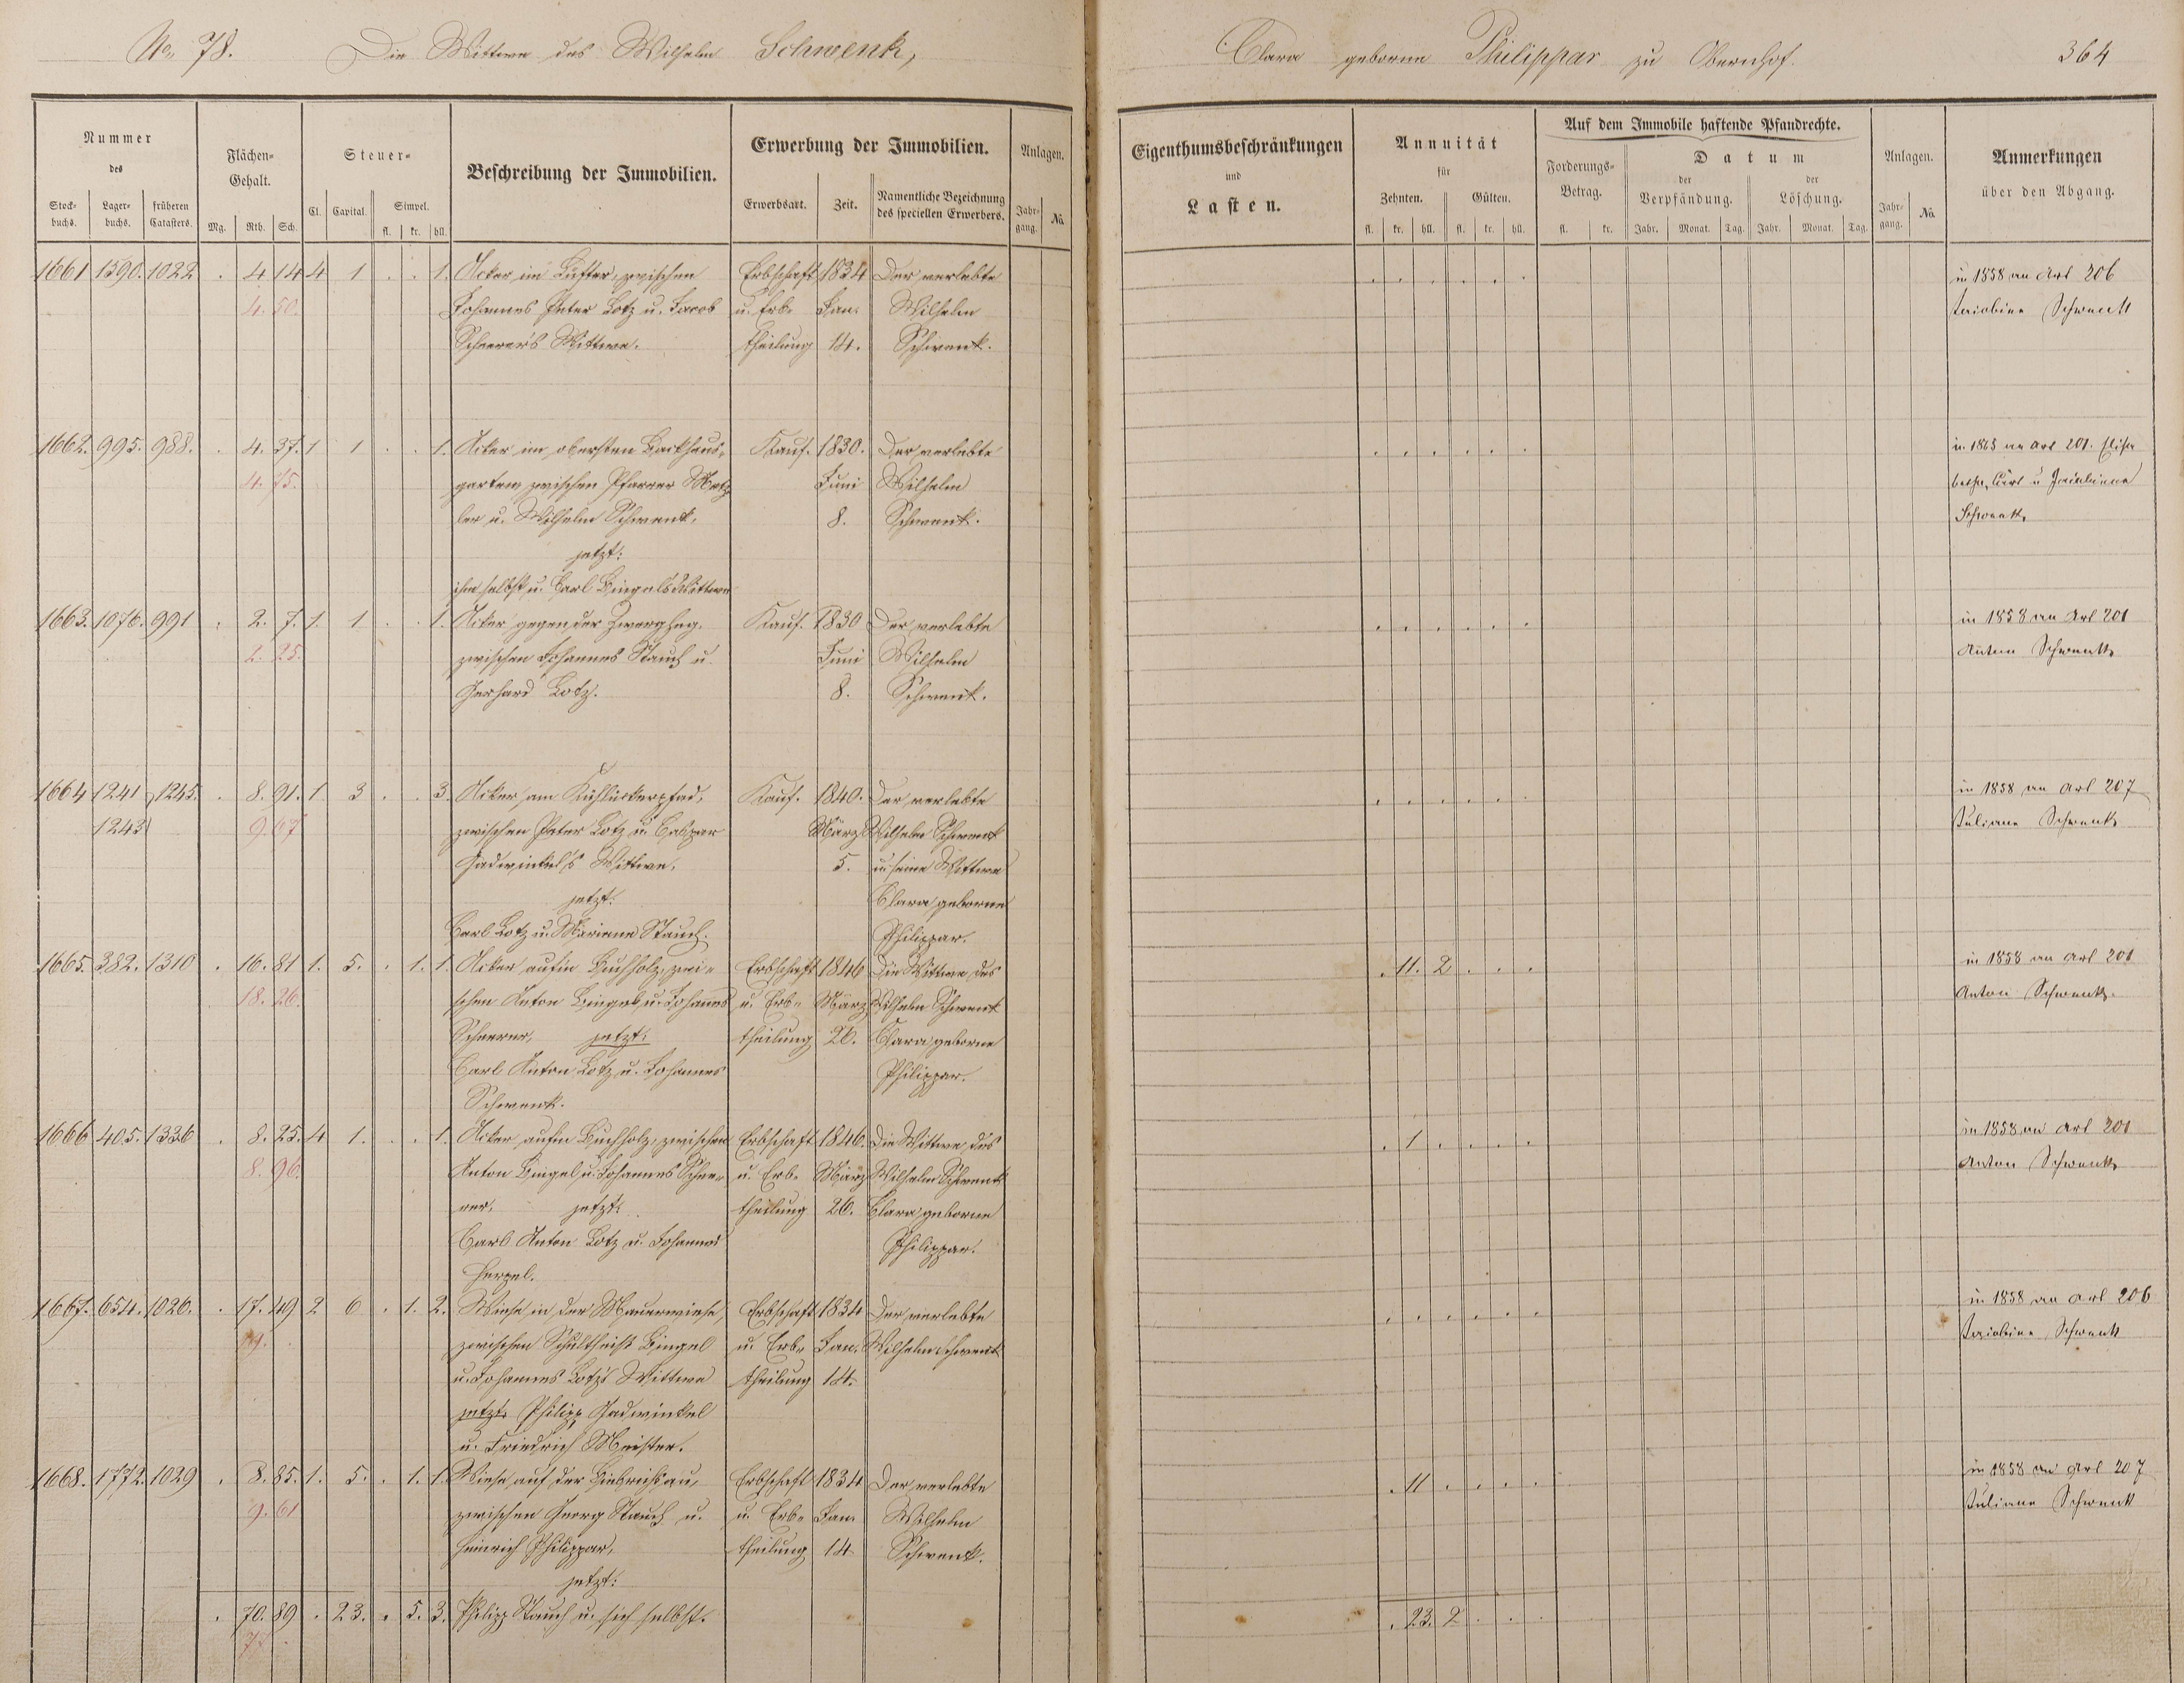 No. 78. Die Wittwe des Wilhelm Schwenk,
Clara geborne Philippar zu Obernhof. 364
Nummer des
Stock-buchs. Lager-buchs. früheren Catasters.
Flächen-Gehalt.
Mg. Rth. Sch.
Steuer-
Cl. Capital. Simpel.
fl. kr. hll.
Beschreibung der Immobilien.
Erwerbung der Immobilien.
Erwerbsart. Zeit. Namentliche Bezeichnung des speciellen Erwerbers.
Anlagen.
Jahr-gang. No.
Eigenthumsbeschränkungen
und
Lasten.
Annuität
für
Zehnten. Gülten.
fl. kr. hll. fl. kr. hll.
Auf dem Immobile haftende Pfandrechte.
Forderungs-Betrag.
fl. kr.
Datum
der Verpfändung. der Löschung.
Jahr. Monat. Tag. Jahr. Monat. Tag.
Anlagen.
Jahr-gang. No.
Anmerkungen
über den Abgang.
1661 1590. 1022 . 4 14 4 1 . . 1. Acker im Lüfter, zwischen Erbschaft 1834 Der verlebte . . . . . . in 1858 an Art 206
4. 50. Johannes Peter Lotz u. Jacob u. Erb- Jan. Wilhelm Schwenk
Scheerer's Wittwe. theilung 14. Schwenk.
1662. 995. 988. . 4. 37. 1 1 . . 1. Acker im obersten Backhaus- Kauf. 1830. Der verlebte . . . . . . in 1863 an Art 201. Elisa
4. 75. garten, zwischen Pfarrer Metz- Juni Wilhelm betha, Carl u
ler u. Wilhelm Schwenk, 8. Schwenk. Schwenk
jetzt:
ihm selbst u. Carl Bingels Wittwe
1663. 1076. 991 . 2. 7. 1. 1 . . 1. Acker gegen der Zwerghag, Kauf. 1830 Der verlebte . . . . . . in 1858 an Art 201
2. 25. zwischen Johannes Stauch u. Juni Wilhelm Anton Schwenk
Gerhard Lotz. 8. Schwenk.
1664 1241 1245. . 8. 91. 1 3 . . 3. Acker am Kühlückerpfad, Kauf. 1840. Der verlebte . . . . . . in 1858 an Art 207
1243 9. 67 zwischen Peter Lotz u. Caspar März Wilhelm Schwenk Juliane Schwenk
Hadwinkel's Wittwe, 5. u. seine Wittwe
jetzt: Clara geborne
Carl Lotz u. Mariane Stauch. Philippar.
1665. 382. 1310 . 16. 81 1. 5. . 1. 1. Acker aufm Buchholz, zwi- Erbschaft 1846 Die Wittwe des . 11. 2 . . . in 1858 an Art 201
18. 26. schen Anton Bingel u. Johannes u. Erb- März Wilhelm Schwenk Anton Schwenk
Scheerer, jetzt: theilung 26. Clara geborne
Carl Anton Lotz u. Johannes Philippar.
Schwenk.
1666 405. 1336 . 8. 25. 4 1. . . 1. Acker aufm Buchholz, zwischen Erbschaft 1846. Die Wittwe des . 1 . . . . in 1858 an Art 201
8. 96. Anton Bingel u. Johannes Schee- u. Erb- März Wilhelm Schwenk Anton Schwenk
rer, jetzt: theilung 26. Clara geborne
Carl Anton Lotz u. Johannes Philippar.
Herpel.
1667. 654. 1026. . 17. 49 2 6 . 1. 2. Wiese in der Mauerwiese, Erbschaft 1834 Der verlebte . . . . . . in 1858 an Art 206
19. zwischen Schultheiß Bingel u. Erb- Jan. Wilhelm Schwenk Schwenk
u. Johannes Lotz's Wittwe theilung 14.
jetzt: Philipp Hadwinkel
u. Friedrich Meister.
1668. 1772. 1029 . 8. 85. 1. 5. . 1. 1. Wiese auf der Liebrichsau, Erbschaft 1834 Der verlebte . 11 . . . . in 1858 an Art 207
9. 61 zwischen Georg Stauch u. u. Erb- Jan. Wilhelm Juliane Schwenk
Heinrich Philippar, theilung 14 Schwenk.
jetzt:
. 70. 89 . 23. . 5. 3. Philipp Stauch u. sich selbst. . 23. 2 . . .